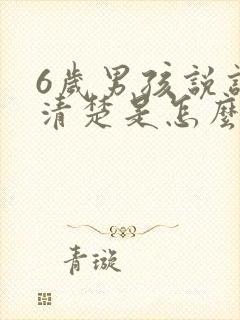 6歲男孩說
清楚是怎麼
青璇